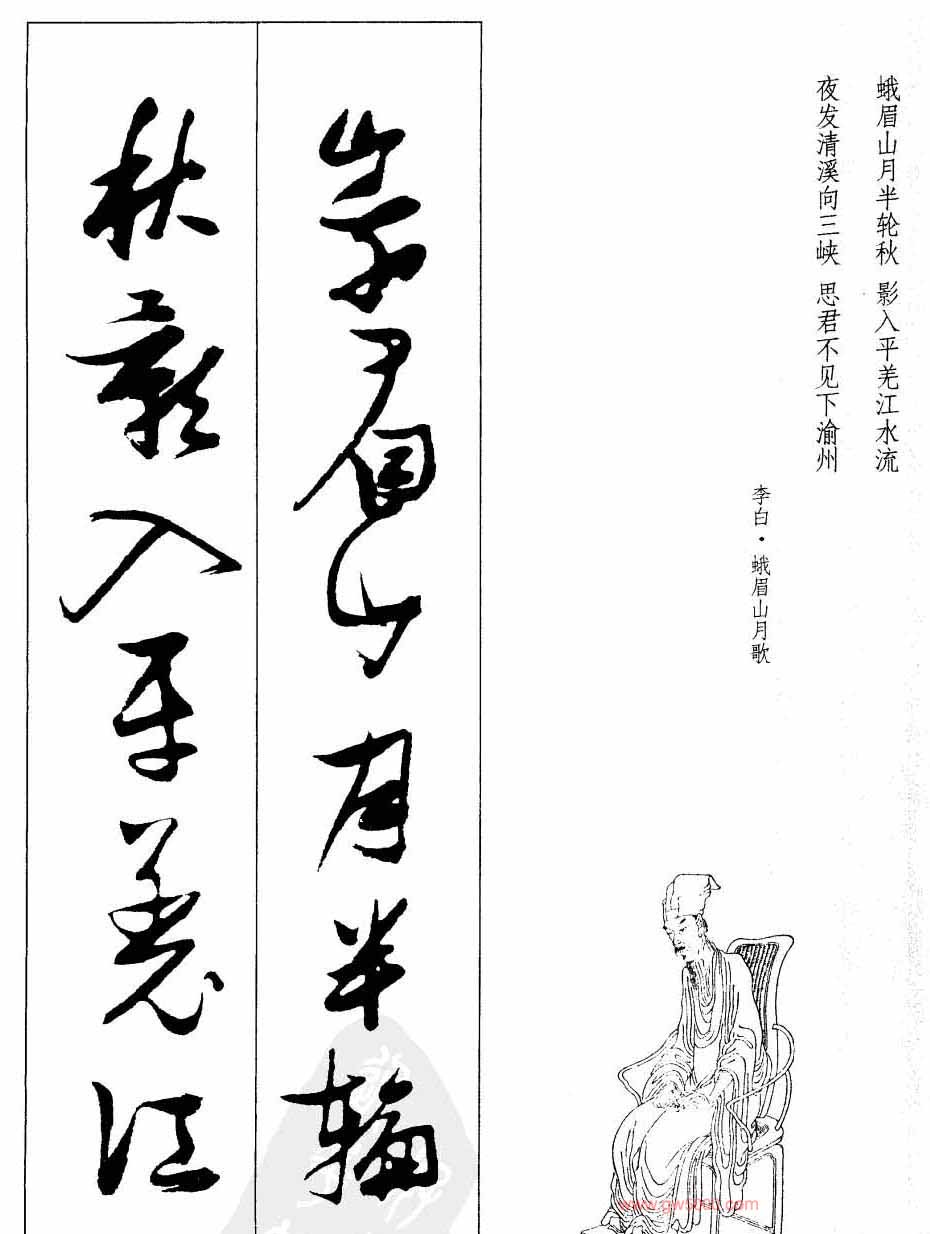 蛾眉山月半轮秋 影入平羌江水流
夜发清溪向三峡 思君不见下渝州
李白·蛾眉山月歌
峩眉山月半輪
秋影入平羌江